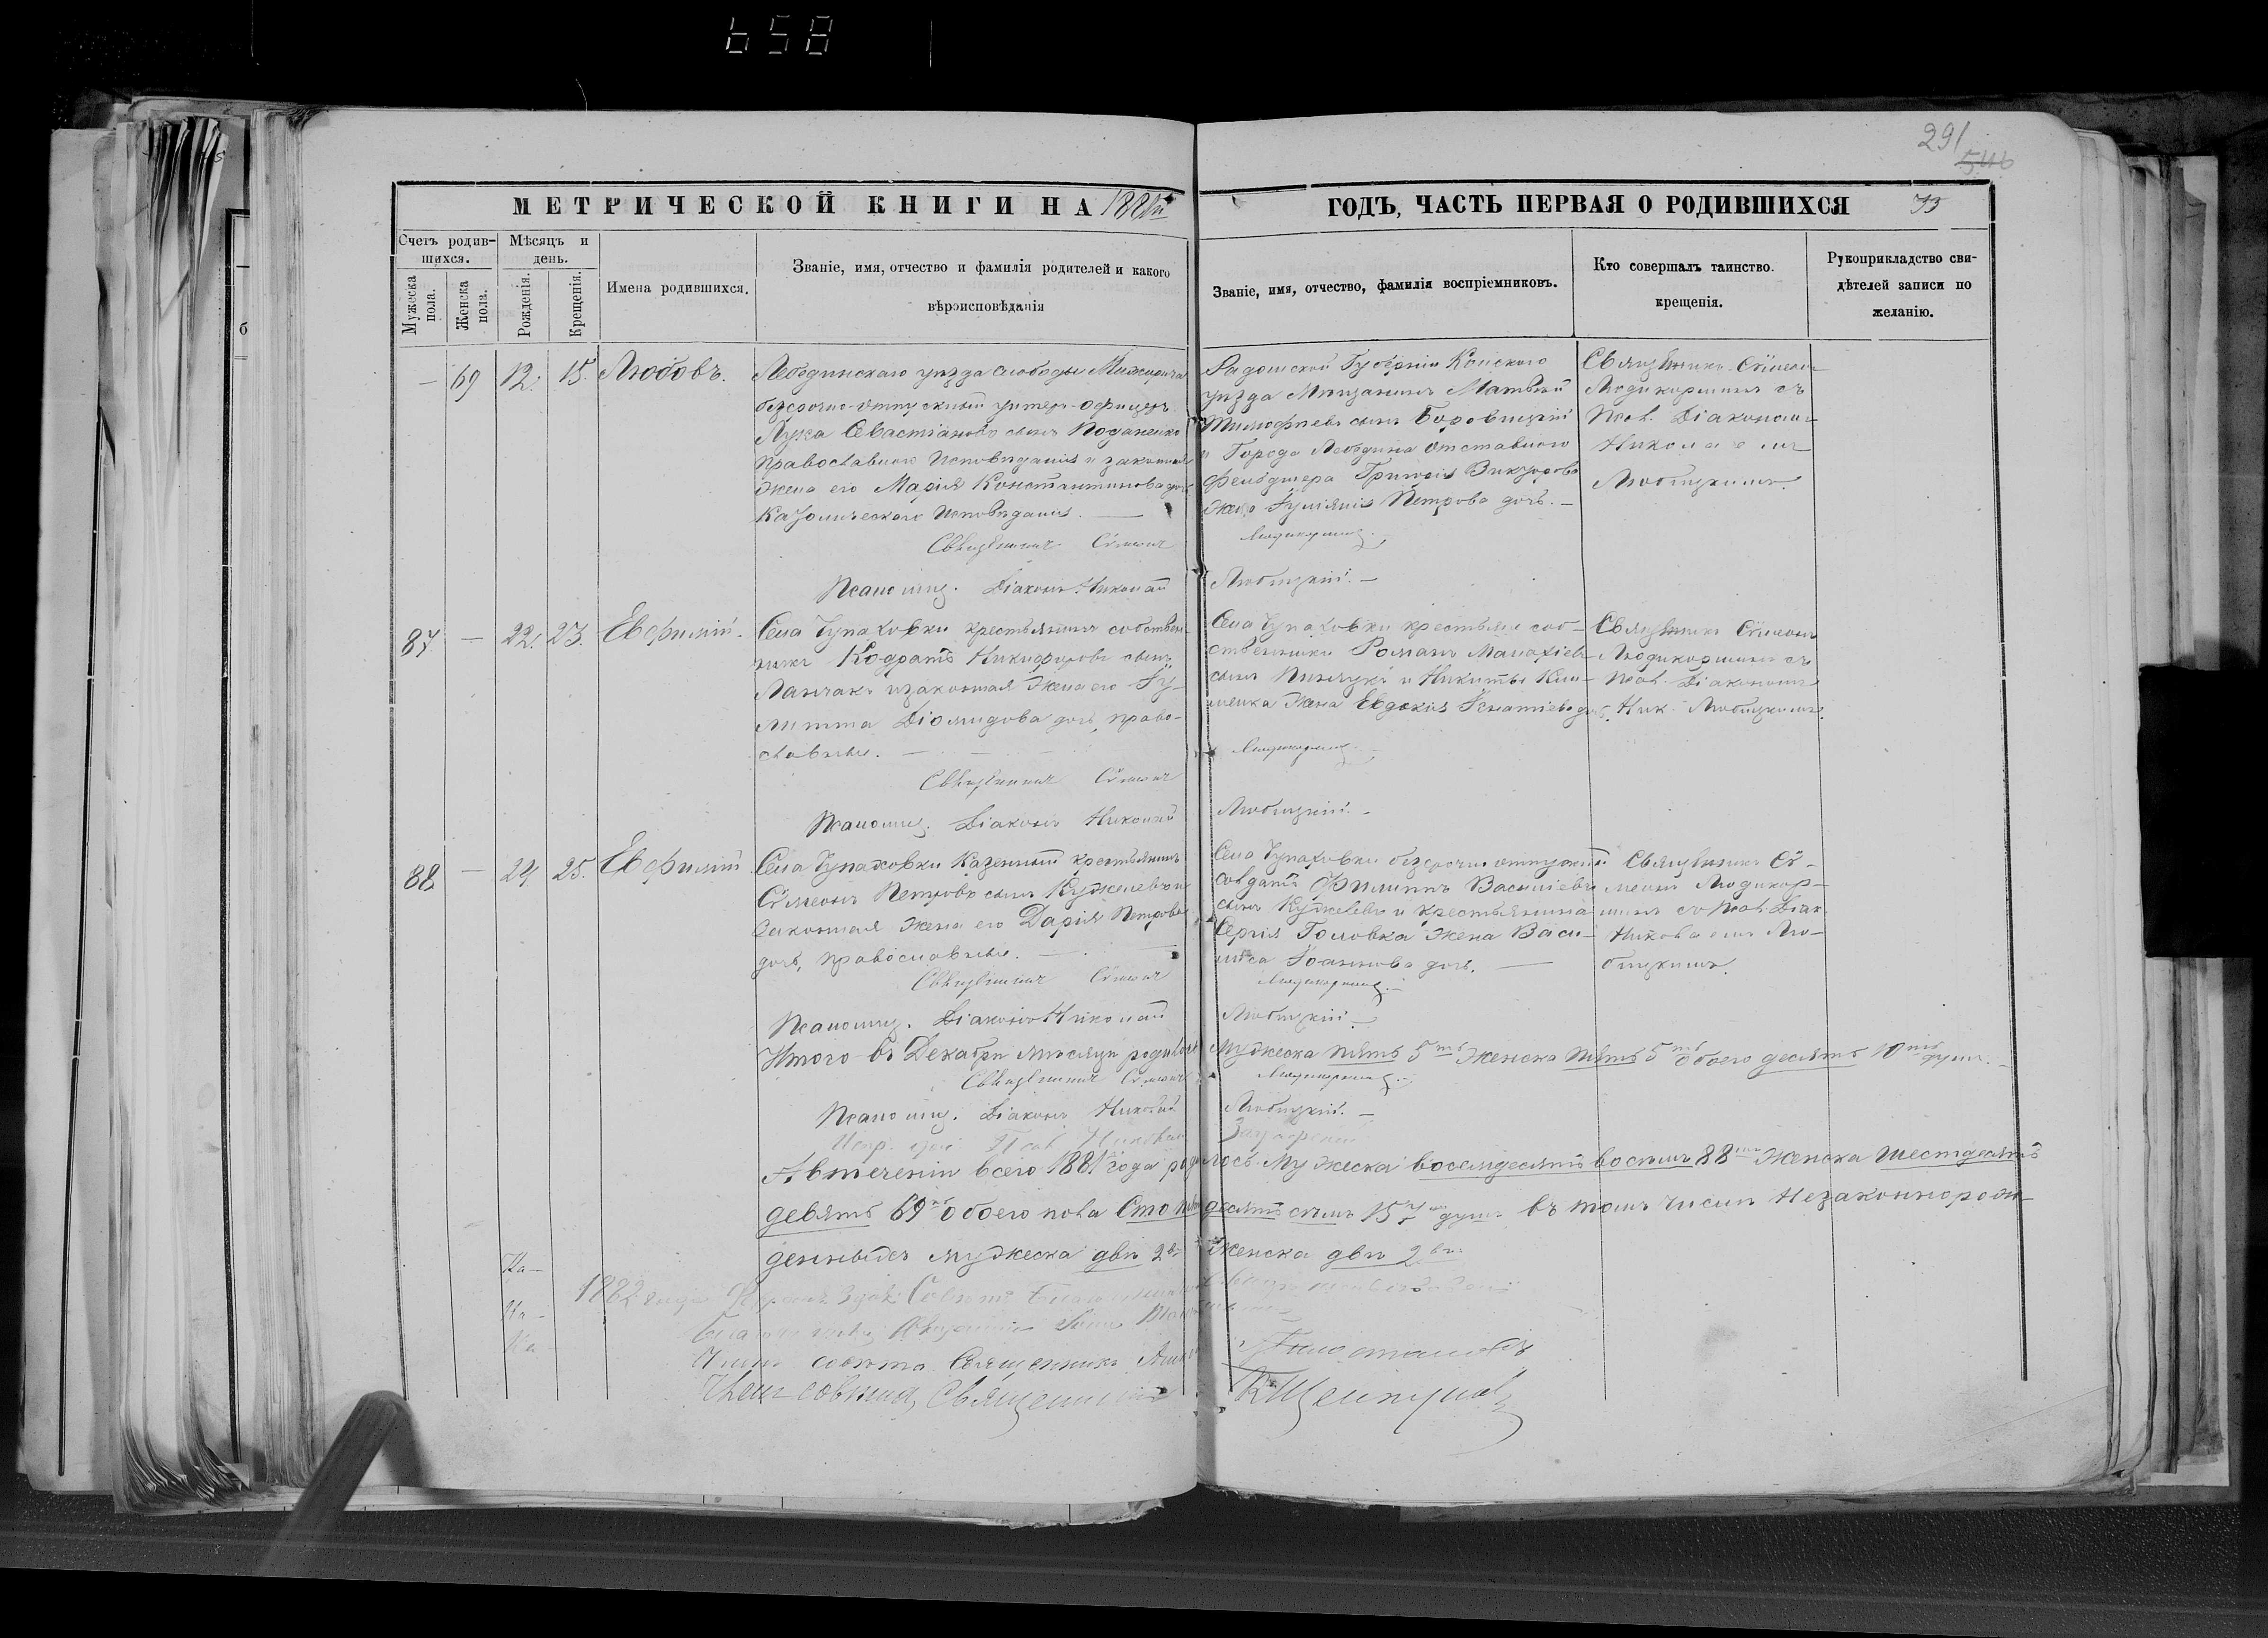 658
291
546
МЕТРИЧЕСКОЙ КНИГИ НА 1881й
ГОДЪ, ЧАСТЬ ПЕРВАЯ О РОДИВШИХСЯ
Счетъ родив-
шихся.
Мѣсяцъ и
день.
Мужеска пола.
Женска пола.
Рожденія.
Крещенія.
Имена родившихся.
Званіе, имя, отчество и фамилія родителей и какого
вѣроисповѣданія
Званіе, имя, отчество, фамилія воспріемниковъ.
Кто совершалъ таинство.
крещенія.
Рукоприкладство сви-
дѣтелей записи по
желанію.
б
— 69 12. 15. Любовь.
Лебединскаго уѣзда слободы Межирича
безсрочно-отпускный унтеръ-офицеръ
Лука Севастіановъ сынъ
православного исповѣданія и законная
жена его Марія Константинова дочь
Католическаго исповѣданія. —
Священникъ Сѵмеонъ
Псаломщ. Діаконъ Николай
Радомской Губерніи Конского
уѣзда Мѣщанинъ Матвѣй
Тимофѣевъ сынъ Боровицкій
и Города Лебедина отставного
фельдшера Григорія Викторова
жена Іуліанія Петрова дочь. —
Людикорминъ. —
Любицкій. —
Священникъ Сѵмеонъ
Людикорминъ съ
Псал. Діакономъ
Николаемъ
Любицкимъ.
87 — 22. 23. Евфимій.
Села Чупаховки крестьянинъ собствен-
никъ Кодратъ Никифоровъ сынъ
и законная жена его Іу-
литта Діомидова дочь, право-
славные. —
Священникъ Сѵмеонъ
Псаломщ. Діаконъ Николай
Села Чупаховки крестьяне соб-
ственники Романъ Малахіевъ
сынъ и Никиты Кли-
менка жена Евдокія Игнатіева дочь.
Людикорминъ. —
Любицкій. —
Священникъ Сѵмеонъ
Людикорминъ съ
Псал. Діакономъ
Ник. Любицкимъ.
88 — 24. 25. Евфимій
Села Чупаховки Казенный крестьянинъ
Сѵмеонъ Петровъ сынъ Кужелевъ и
законная жена его Дарія Петрова
дочь, православные. —
Священникъ Сѵмеонъ
Псаломщ. Діаконъ Николай
Села Чупаховки безсрочно отпускный
солдатъ Филиппъ Василіевъ
сынъ Кужелевъ и крестьянина
Сергія Головка жена Васи-
лисса Іоаннова дочь. —
Людикорминъ. —
Любицкій —
Священникъ Сѵ-
меонъ Людикор-
минъ съ Псал. Діак.
Николаемъ Лю-
бицкимъ.
Итого въ Декабрѣ мѣсяцѣ родилось мужеска пять 5ть женска пять 5ть обоего десять 10ть душъ. —
Священникъ Сѵмеонъ Людикорминъ. —
Псаломщ. Діаконъ Николай Любицкій. —
А въ теченіи всего 1881 года родилось мужеска восемдесятъ восемь 88мь женска шестдесятъ
девять 69ть обоего пола Сто пятдесятъ семь 157мь душъ въ томъ числѣ незаконнорож-
денныхъ мужеска два 2ва женска двѣ 2вѣ
1882 года
Членъ совѣта Священникъ
Членъ совѣта, Священникъ